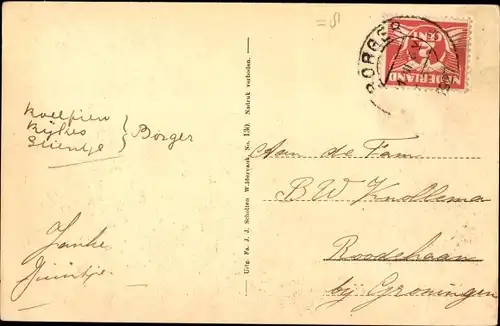 BORGER
CENT
NEDERLAND
Roelfien
Rykes
Stientje
Borger
Janke
Uitg. Fa. J. J. Scholten W.Mervank, No. 130. Nadruk verboden.
Aan de Fam
B W Knollema
Roodehaan
by Groningen